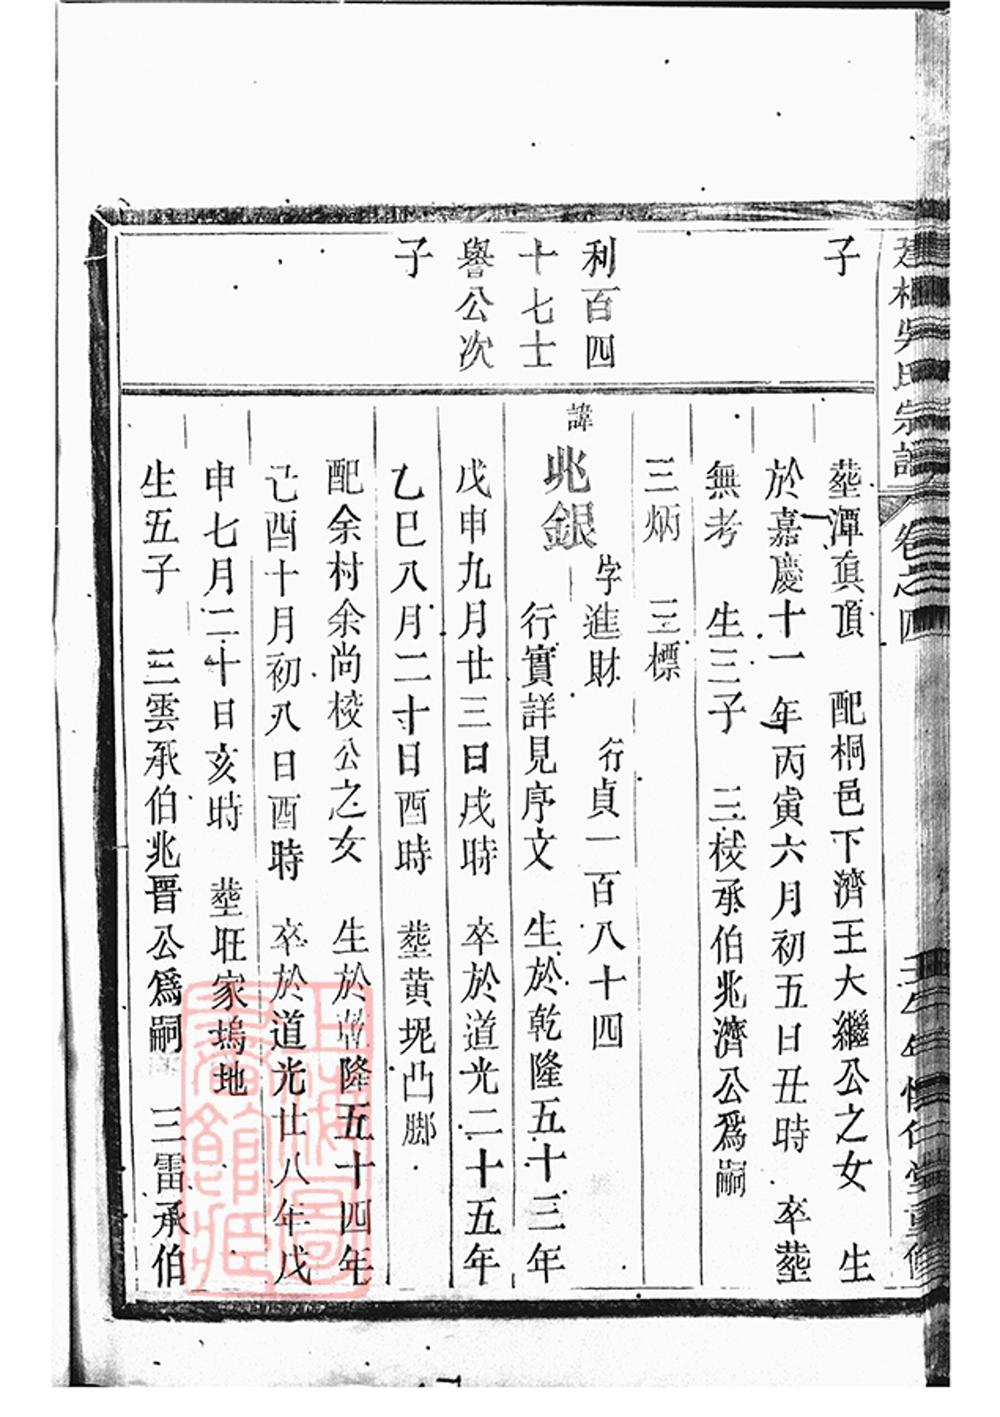 吳氏宗譜 卷之四
子
塟潭真頂 配桐邑下濟王大繼公之女 生
於嘉慶十一年丙寅六月初五日丑時 卒塟
無考 生三子 三棱承伯兆濟公爲嗣
三炳 三標
利百四
十七士
譽公次
子
諱兆銀 字進財 行貞一百八十四
行實詳見序文 生於乾隆五十三年
戊申九月廿三日戌時 卒於道光二十五年
乙巳八月二十日酉時 塟黄坭凸脚
配余村余尚校公之女 生於乾隆五十四年
己酉十月初八日酉時 卒於道光廿八年戊
申七月二十日亥時 塟旺家塢地
生五子 三雲承伯兆晋公爲嗣 三雷承伯
上海圖書館藏